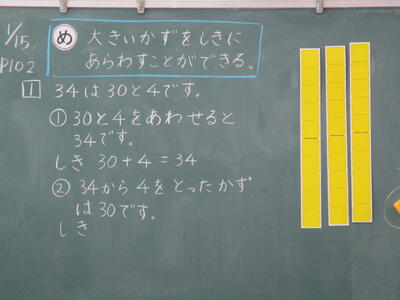 1/15
P102
め 大きいかずをしきに
あらわすことができる。
1 34は30と4です。
① 30と4をあわせると
34です。
しき 30+4=34
② 34から4をとったかず
は30です。
しき